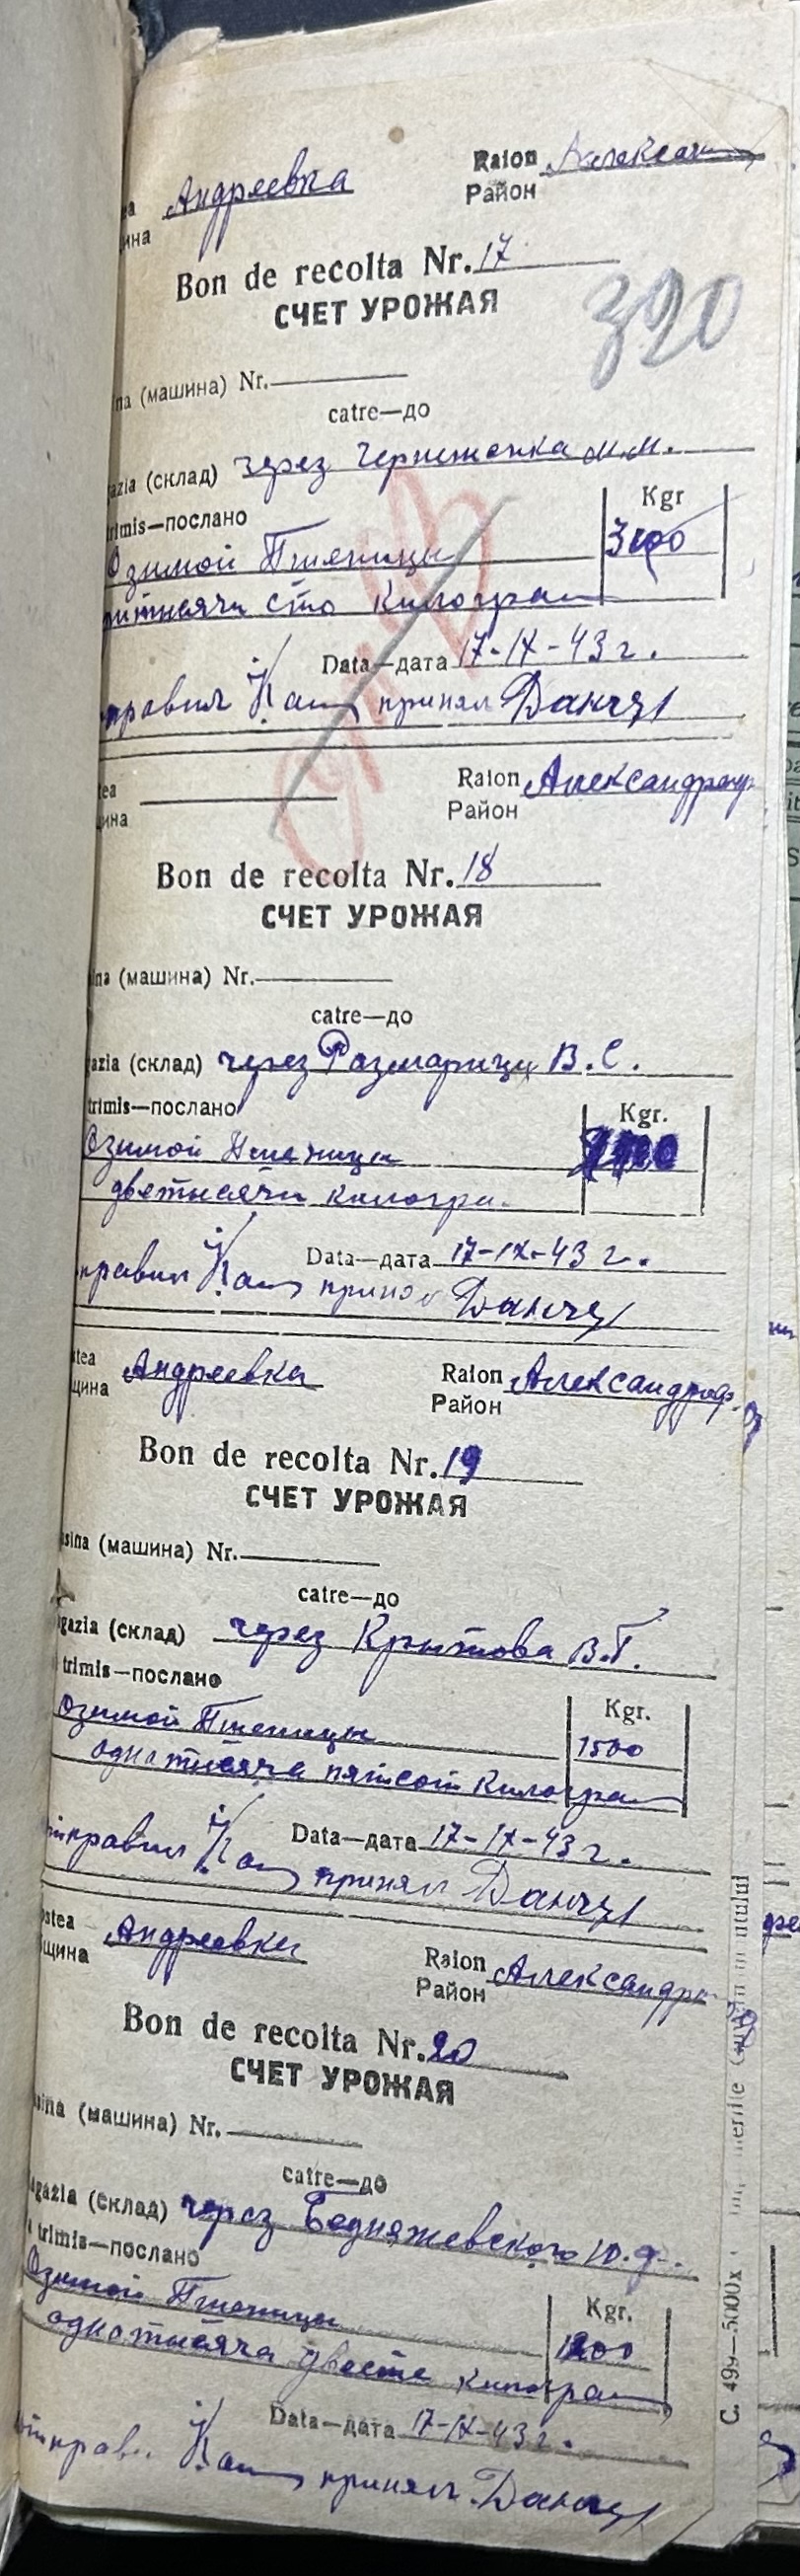 Андреевка Raion Александ
ина Район
Bon de recolta Nr. 17
СЧЕТ УРОЖАЯ
320
na (машина) Nr.
catre—до
azia (склад) через Чернженка М.М.
trimis—послано Kgr
Озимой Пшеницы 3100
ритысячи сто Килограм
Data—дата 17-IX-43 г.
правил принял Данчул
tea Raion Александров
щина Район
Bon de recolta Nr. 18
СЧЕТ УРОЖАЯ
ina (машина) Nr.
catre—до
azia (склад) через Размарицу В.С.
trimis—послано Kgr.
Озимой Пшеницы
две тысячи килогра.
Data—дата 17-IX-43 г.
правил принял Данчул
tea Андреевка Raion Александров.
щина Район
Bon de recolta Nr. 19
СЧЕТ УРОЖАЯ
sina (машина) Nr.
catre—до
gazia (склад) через Крытова В.Г.
trimis—послано Kgr.
Озимой Пшеницы 1500
одна тысяча пятсот Килограм
Data—дата 17-IX-43 г.
тправил принял Данчул
stea Андреевка Raion Александро
щина Район
Bon de recolta Nr. 20
СЧЕТ УРОЖАЯ
sina (машина) Nr.
catre—до
agazia (склад) через Бодняжевского Ю.Ф.
trimis—послано Kgr.
Озимой Пшеницы 1200
одна тысяча двести килограм
Data—дата 17-IX-43 г.
тправи. принял Данчул
C. 499—5000x